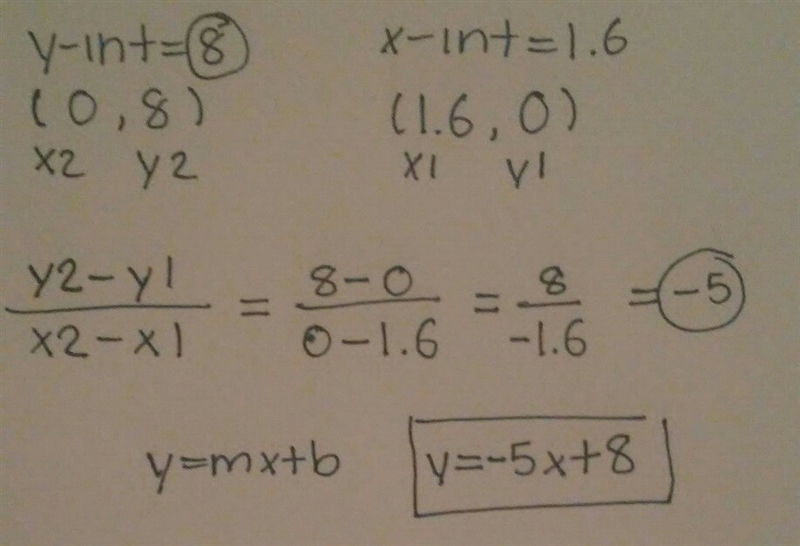 y-int=8 x-int=1.6
(0,8) (1.6,0)
x2 y2 x1 y1
y2-y1 / x2-x1 = 8-0 / 0-1.6 = 8 / -1.6 = -5
y=mx+b y=-5x+8